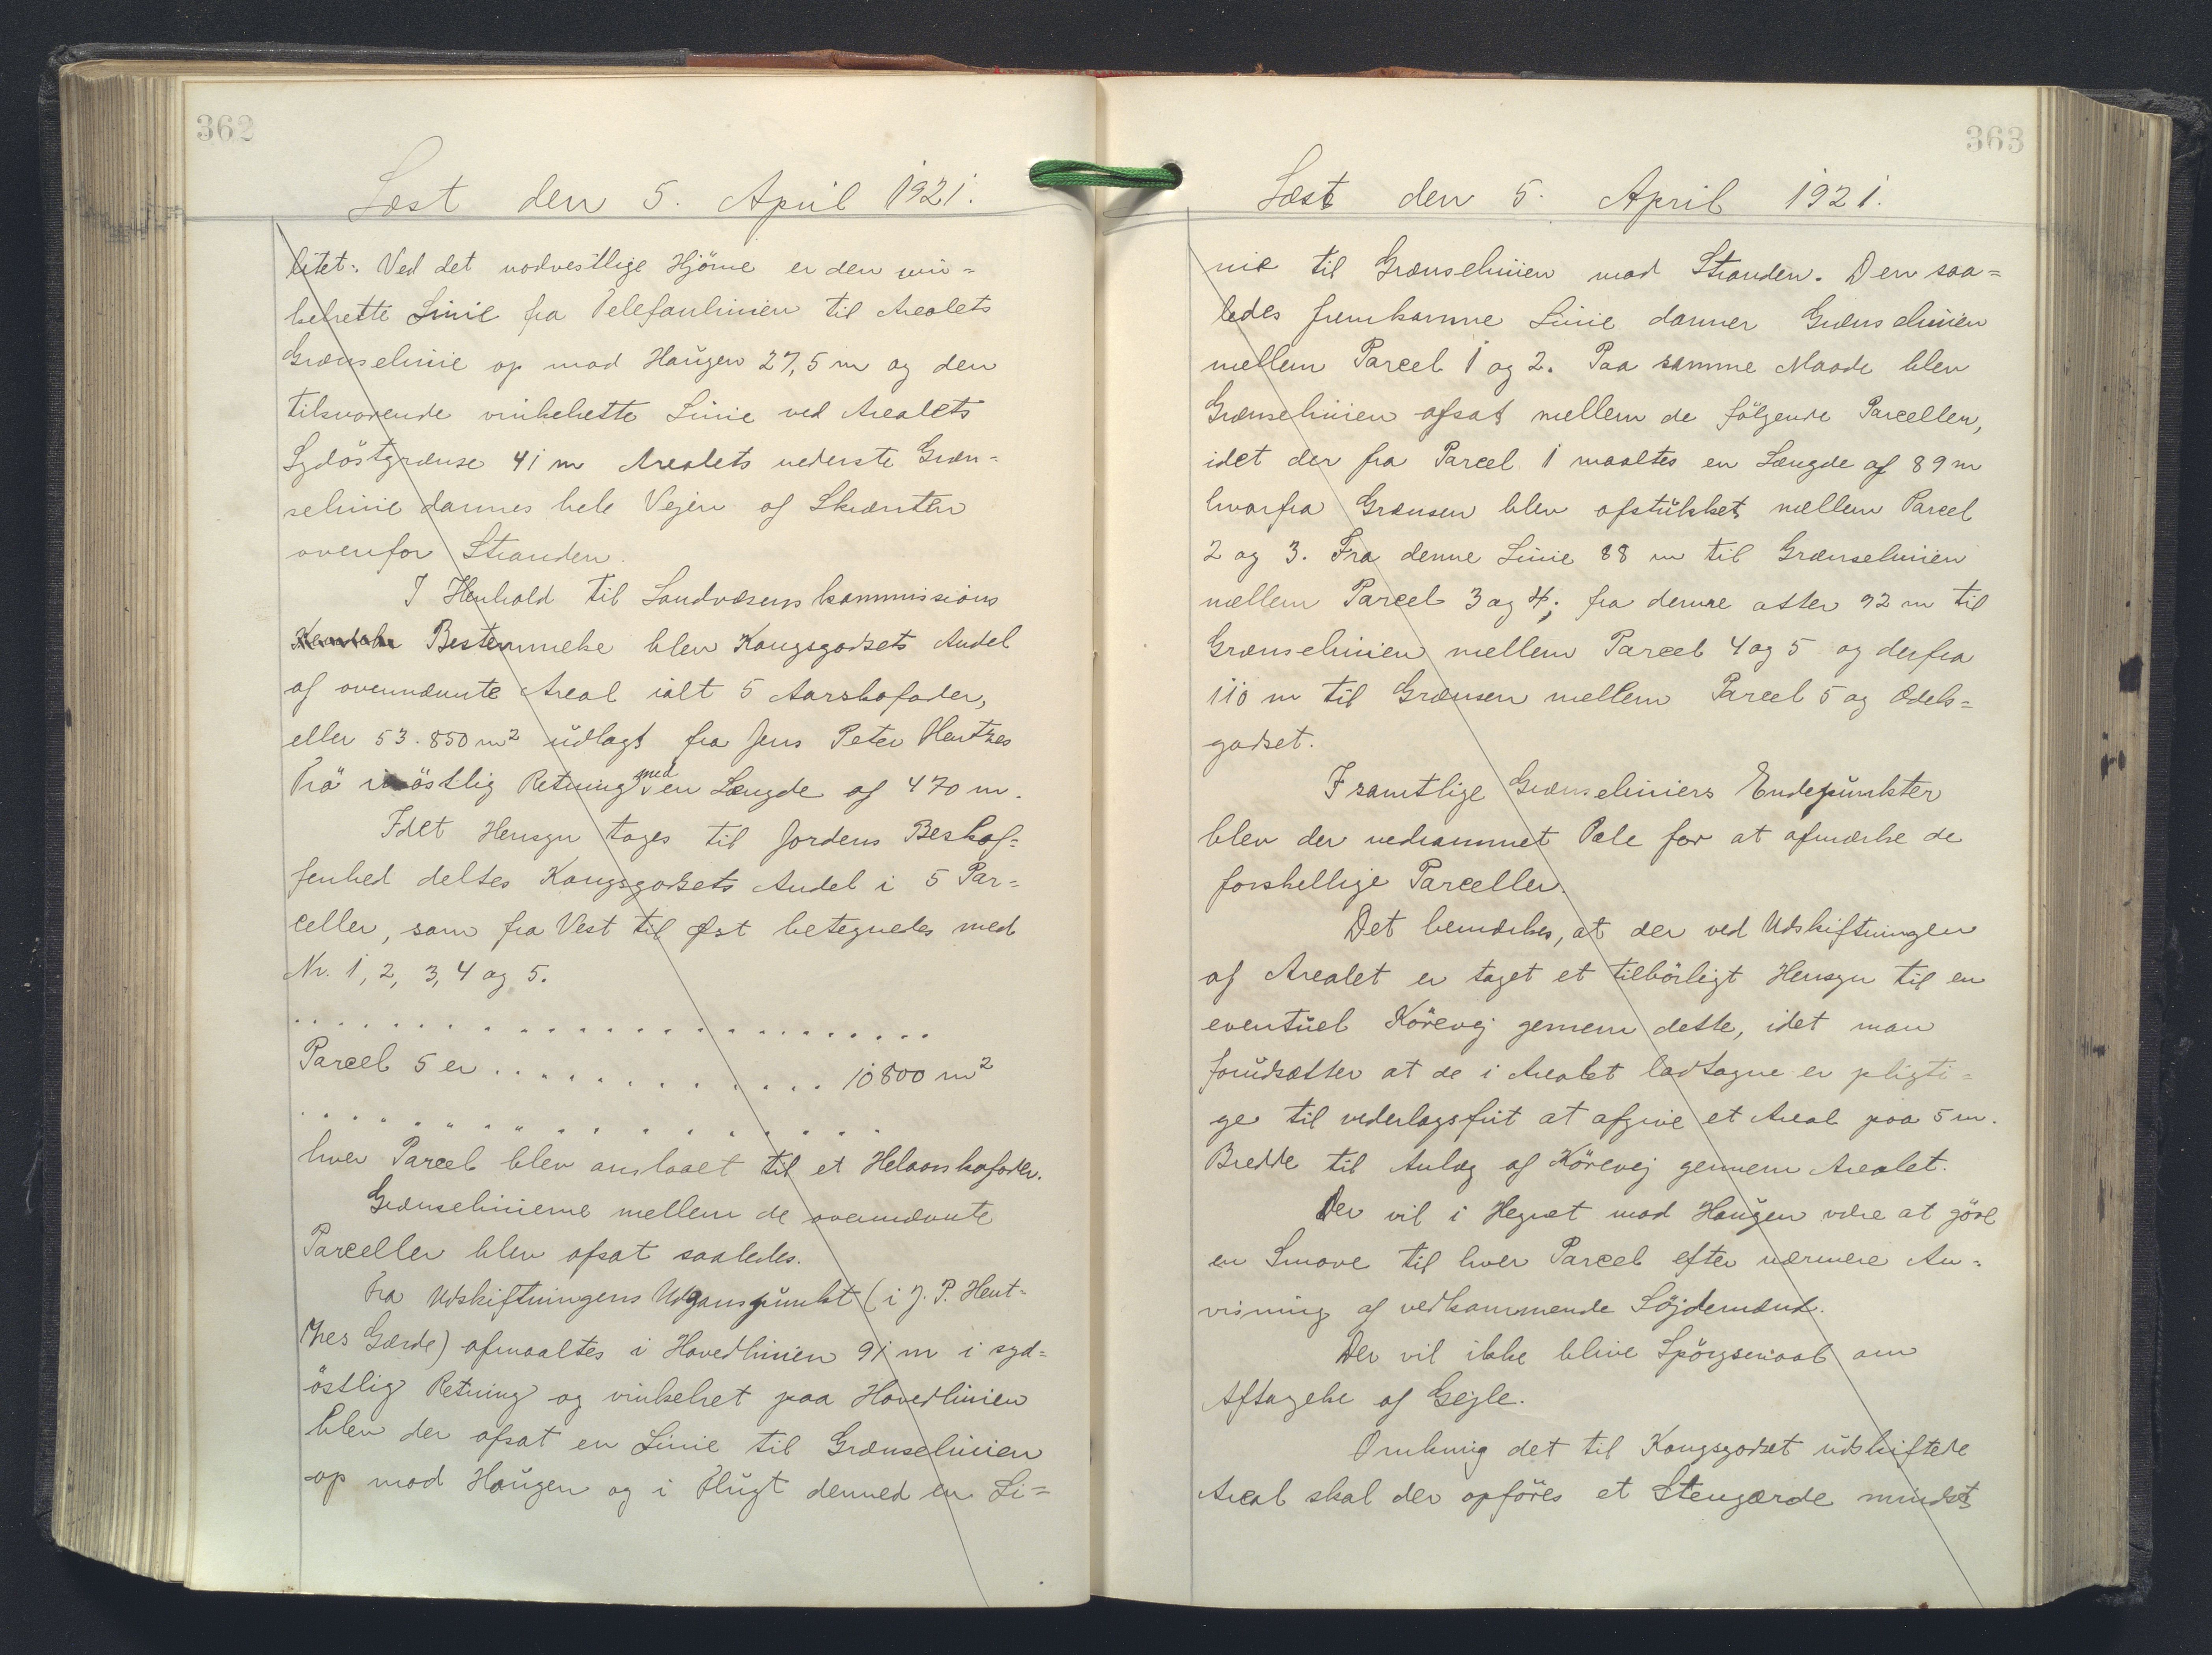 362
Læst den 5. April 1921.
litet: Ved det nodvestlige Hjörne er den vin=
kelrette Linie fra Telefonlinien til Arealets
Grænselinie op mod Haugen 27,5 m og den
tilsvarende vinkelrette Linie ved Arealets
Sydöstgrænse 41 m Arealets nederste Græn-
selinie dannes hele Vejen af Skrænten
ovenfor Stranden.
I Henhold til Landvæsenskommissions
Bestemmelse blev Kongsgodsets Andel
af ovennævnte Areal ialt 5 Aarskofoder,
eller 53.850 m² udlagt fra Jens Peter Hentzes
Trö i östlig Retning med en Længde af 470 m.
Idet Hensyn toges til Jordens Beskaf-
fenhed deltes Kongsgodsets Andel i 5 Par-
celler, som fra Vest til Øst betegnedes med
Nr. 1, 2, 3, 4 og 5.
. . . . . . . . . . . . . . . . . . . .
Parcel 5 er . . . . . . . . . . . . . 10800 m²
. . . . . . . . . . . . . . . . .
hver Parcel blev anslaaet til et Helaarskofoder.
Grænselinierne mellem de ovennævnte
Parceller blev afsat saaledes.
Fra Udskiftningens Udganspunkt (i J. P. Hent-
zes Gærde) afmaaltes i Hovedlinien 91 m i syd=
östlig Retning og vinkelret paa Hovedlinien
blev der afsat en Linie til Grænselinien
op mod Haugen og i Flugt dermed en Li=
363
Læst den 5. April 1921.
nie til Grænselinien mod Stranden. Den saa=
ledes fremkomne Linie danner Grænselinien
mellem Parcel 1 og 2. Paa samme Maade blev
Grænselinien afsat mellem de fölgende Parceller,
idet der fra Parcel 1 maaltes en Længde af 89 m
hvorfra Grænsen blev afstukket mellem Parcel
2 og 3. Fra denne Linie 88 m til Grænselinien
mellem Parcel 3 og 4; fra denne atter 92 m til
Grænselinien mellem Parcel 4 og 5 og derfra
110 m til Grænsen mellem Parcel 5 og Odels=
godset.
I samtlige Grænseliniers Endepunkter
blev der nedrammet Pæle for at afmærke de
forskellige Parceller.
Det bemærkes, at der ved Udskiftningen
af Arealet er taget et tilbörligt Hensyn til en
eventuel Körevej gennem dette, idet man
forudsætter at de i Arealet lodtagne er pligti=
ge til vederlagsfrit at afgive et Areal paa 5 m.
Bredde til Anlæg af Körevej gennem Arealet.
Der vil i Hegnet mod Haugen være at göre
en Smove til hver Parcel efter nærmere An-
visning af vedkommende Söjdemænd.
Der vil ikke blive Spörgsmaal om
Aftagelse af Gejle.
Omkring det til Kongsgodset udskiftede
Areal skal der opföres et Stengærde mindst